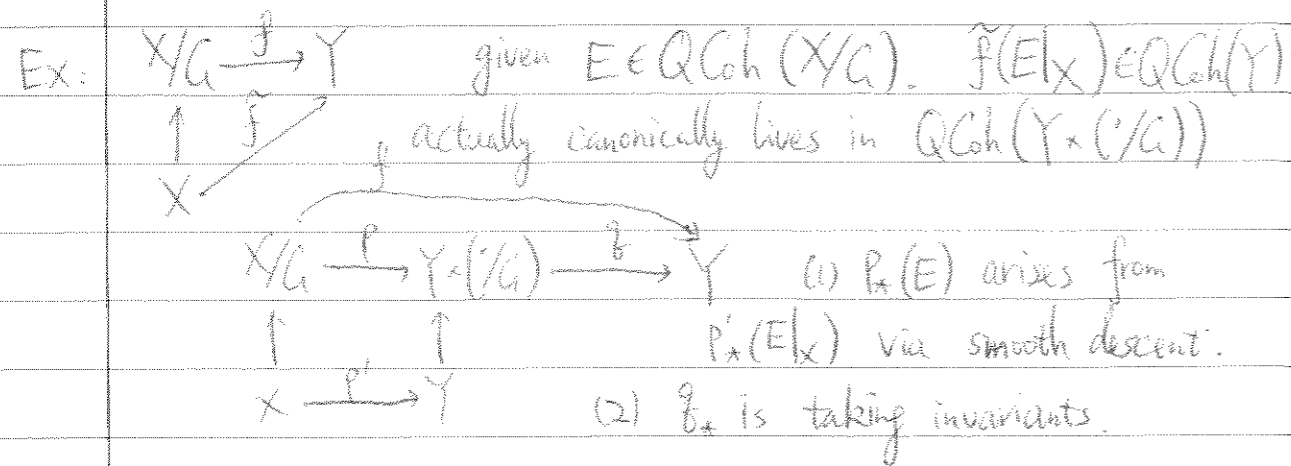 Ex: X/G —f→ Y given E ∈ QCoh(X/G). f̃(E|_X) ∈ QCoh(Y)
↑ f̃ actually canonically lives in QCoh(Y × (·/G))
X f
X/G —p→ Y × (·/G) —q→ Y (1) p_*(E) arises from
↑ ↑ p'_*(E|_X) via smooth descent.
X —p'→ Y (2) q_* is taking invariants.